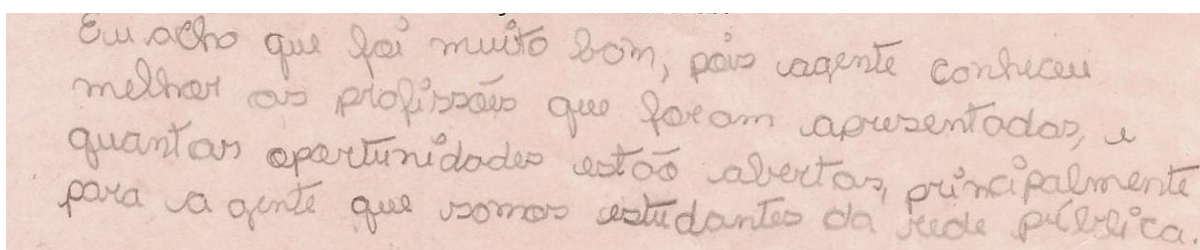 Eu acho que foi muito bom, pois agente conheceu
melhor as profissões que foram apresentadas, e
quantas oportunidades estão abertas, principalmente
para a gente que somos estudantes da rede pública.